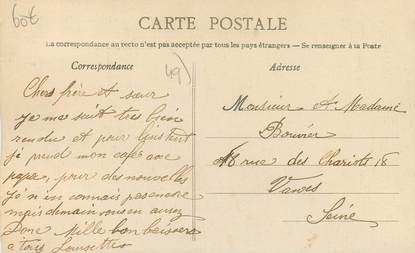 60€
CARTE POSTALE
La correspondance au recto n'est pas acceptée par tous les pays étrangers — Se renseigner à la Poste
Correspondance
49)
Adresse
Chers frère et sœur
je me suit tres bien
rendu et pour
je prend mon café ave
papa, pour des nouvelles
j'en connais pas encore
mais demain vous en aurez
Donc Mille bon baisers
à tous
Monsieur et Madame
Bouvier
18 rue des Chariots 18
Vanves
Seine